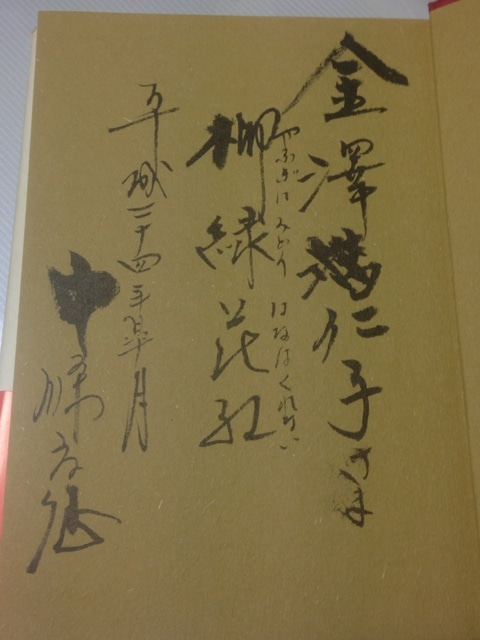 金澤仁子さま
柳緑花紅
やなぎはみどり はなはくれない
平成二十四年皐月
中條高德